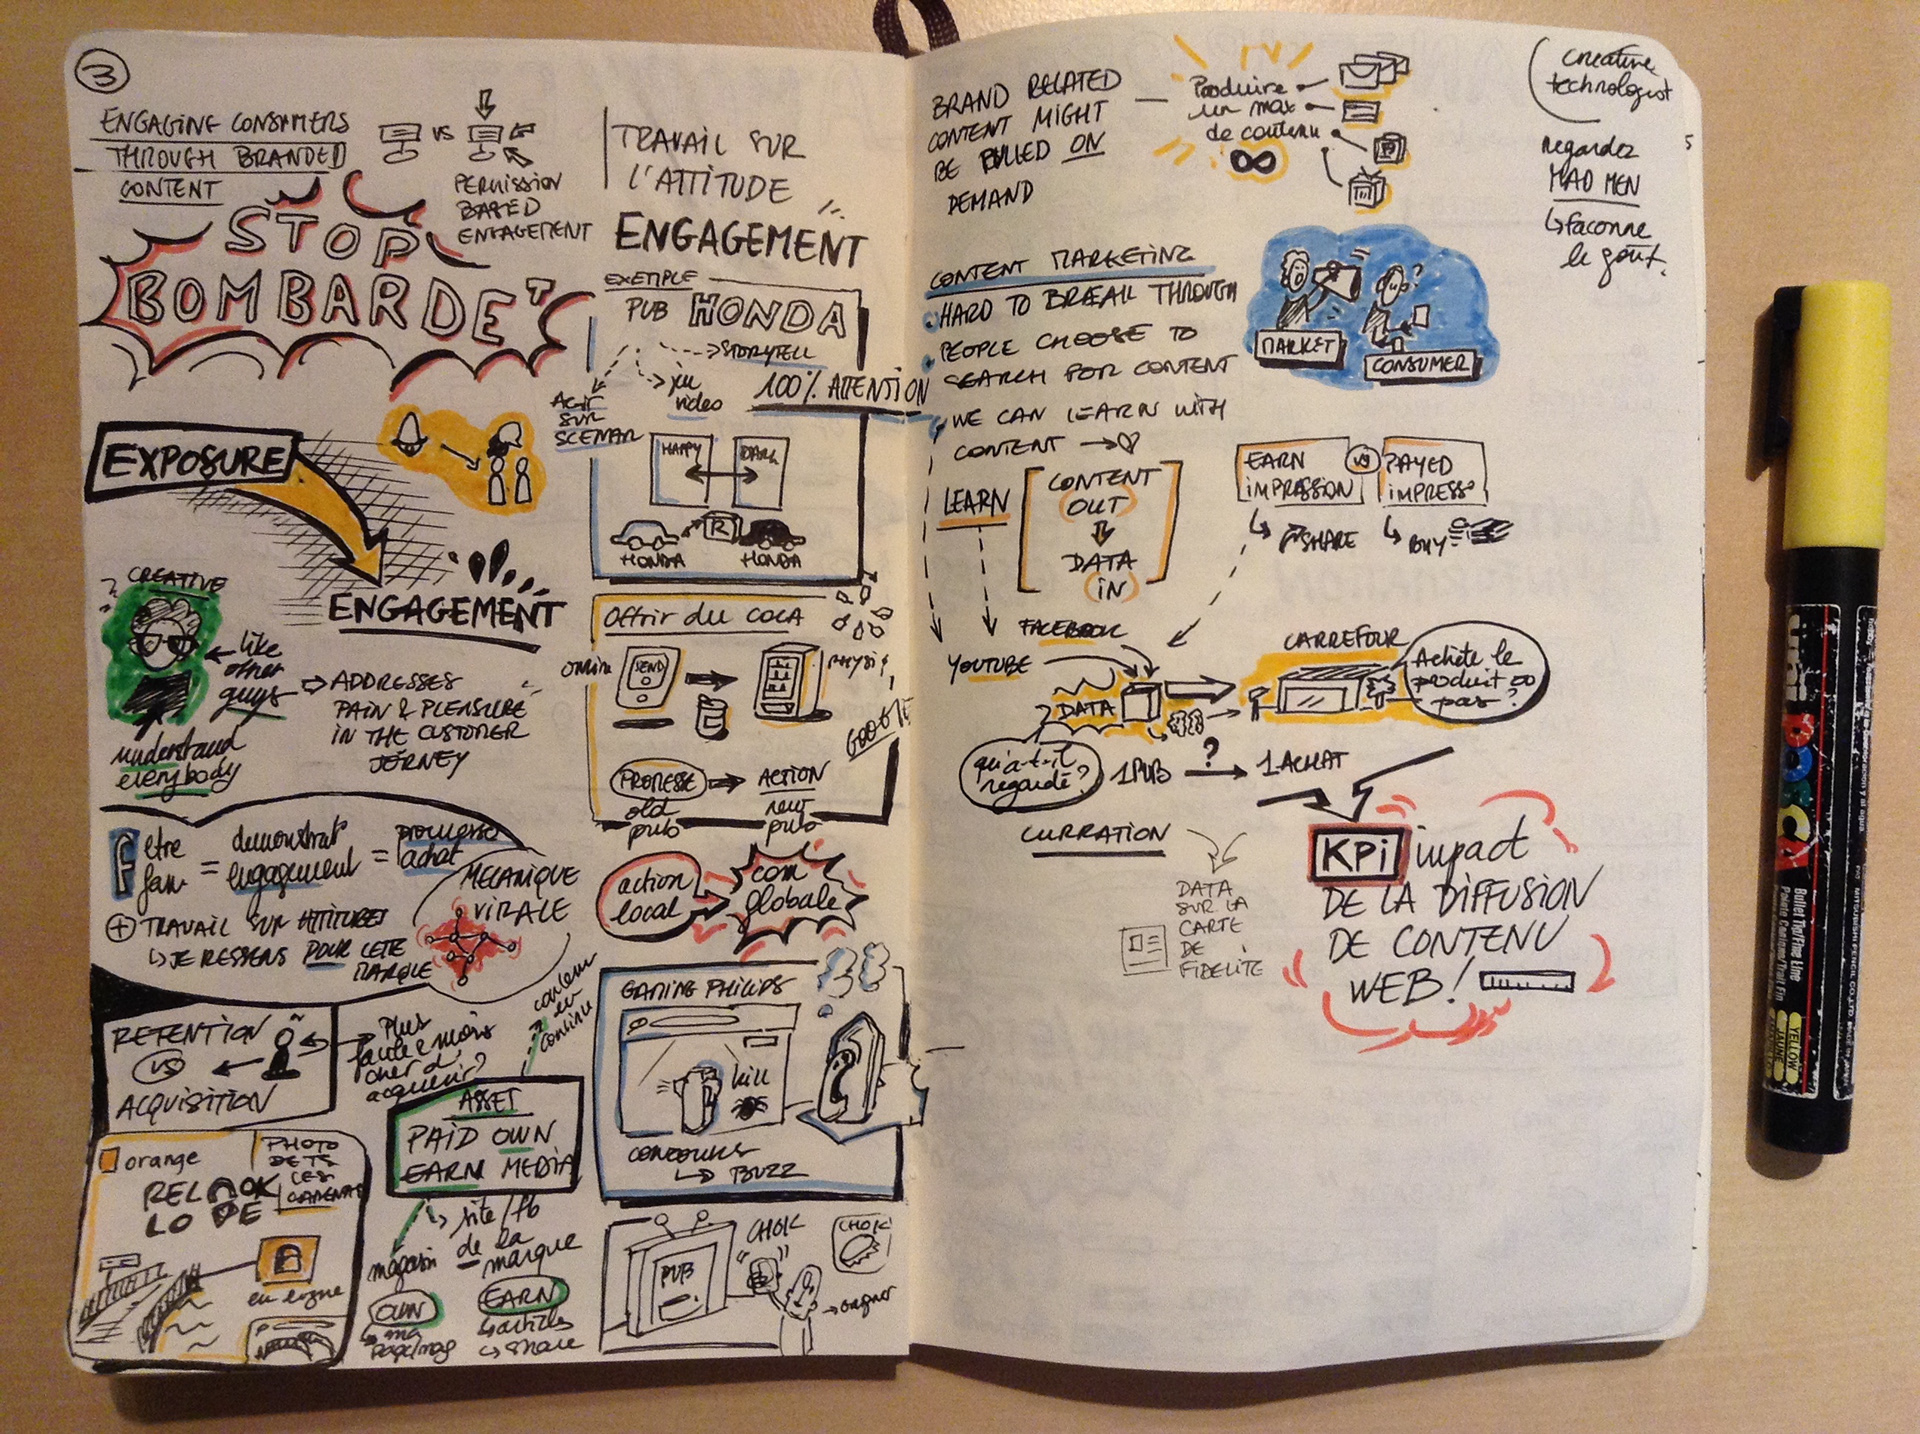 3
ENGAGING CONSUMERS
THROUGH BRANDED
CONTENT
VS
PERMISSION
BASED
ENGAGEMENT
STOP
BOMBARDE
EXPOSURE
ENGAGEMENT
CREATIVE
like
other
guys
understand
everybody
ADDRESSES
PAIN & PLEASURE
IN THE CUSTOMER
JERNEY
f etre
fan
= demonstrat
engagement
= promesse
achat
+ TRAVAIL SUR ATTITUDES
JE RESSENS POUR CETE
MARQUE
MECANIQUE
VIRALE
RETENTION
VS
ACQUISITION
Plus
facile & moins
cher d'
acquerir?
ASSET
PAID OWN
EARN MEDIA
contenu
en
continu
site/fb
de la
marque
magasin
OWN
ma
page/mag
EARN
articles
share
orange
RELOOK
LOPE
PHOTO
DE TS
CES
en ligne
TRAVAIL SUR
L'ATTITUDE
ENGAGEMENT
EXEMPLE
PUB HONDA
STORYTELL
jeu
video
100% ATTENTION
AGIR
SUR
SCENAR
HAPPY
DARK
R
HONDA
HONDA
Offrir du COCA
online
SEND
PHYSIQ
GOOGLE
PROMESSE
old
pub
ACTION
new
pub
action
local
com
globale
GAMING PHILIPS
kill
CONCOURS
BUZZ
PUB
CHOK
CHOK
gagner
BRAND RELATED
CONTENT MIGHT
BE PULLED ON
DEMAND
Produire
un max
de contenu
creative
technologist
regardez
MAD MEN
façonne
le goût.
CONTENT MARKETING
HARD TO BREAK THROUGH
PEOPLE CHOOSE TO
SEARCH FOR CONTENT
WE CAN LEARN WITH
CONTENT
MARKET
CONSUMER
?
LEARN
CONTENT
OUT
DATA
IN
EARN
IMPRESSION
VS
PAYED
IMPRESS°
SHARE
BUY
FACEBOOK
YOUTUBE
DATA
CARREFOUR
Achète le
produit ou
pas?
qu'a-t-il
regardé?
1 PUB
?
1 ACHAT
CURRATION
DATA
SUR LA
CARTE
DE
FIDELITE
KPi impact
DE LA DIFFUSION
DE CONTENU
WEB!
uni POSCA
Bullet Tip/Fine Line
YELLOW
JAUNE
MITSUBISHI PENCIL CO.,LTD.